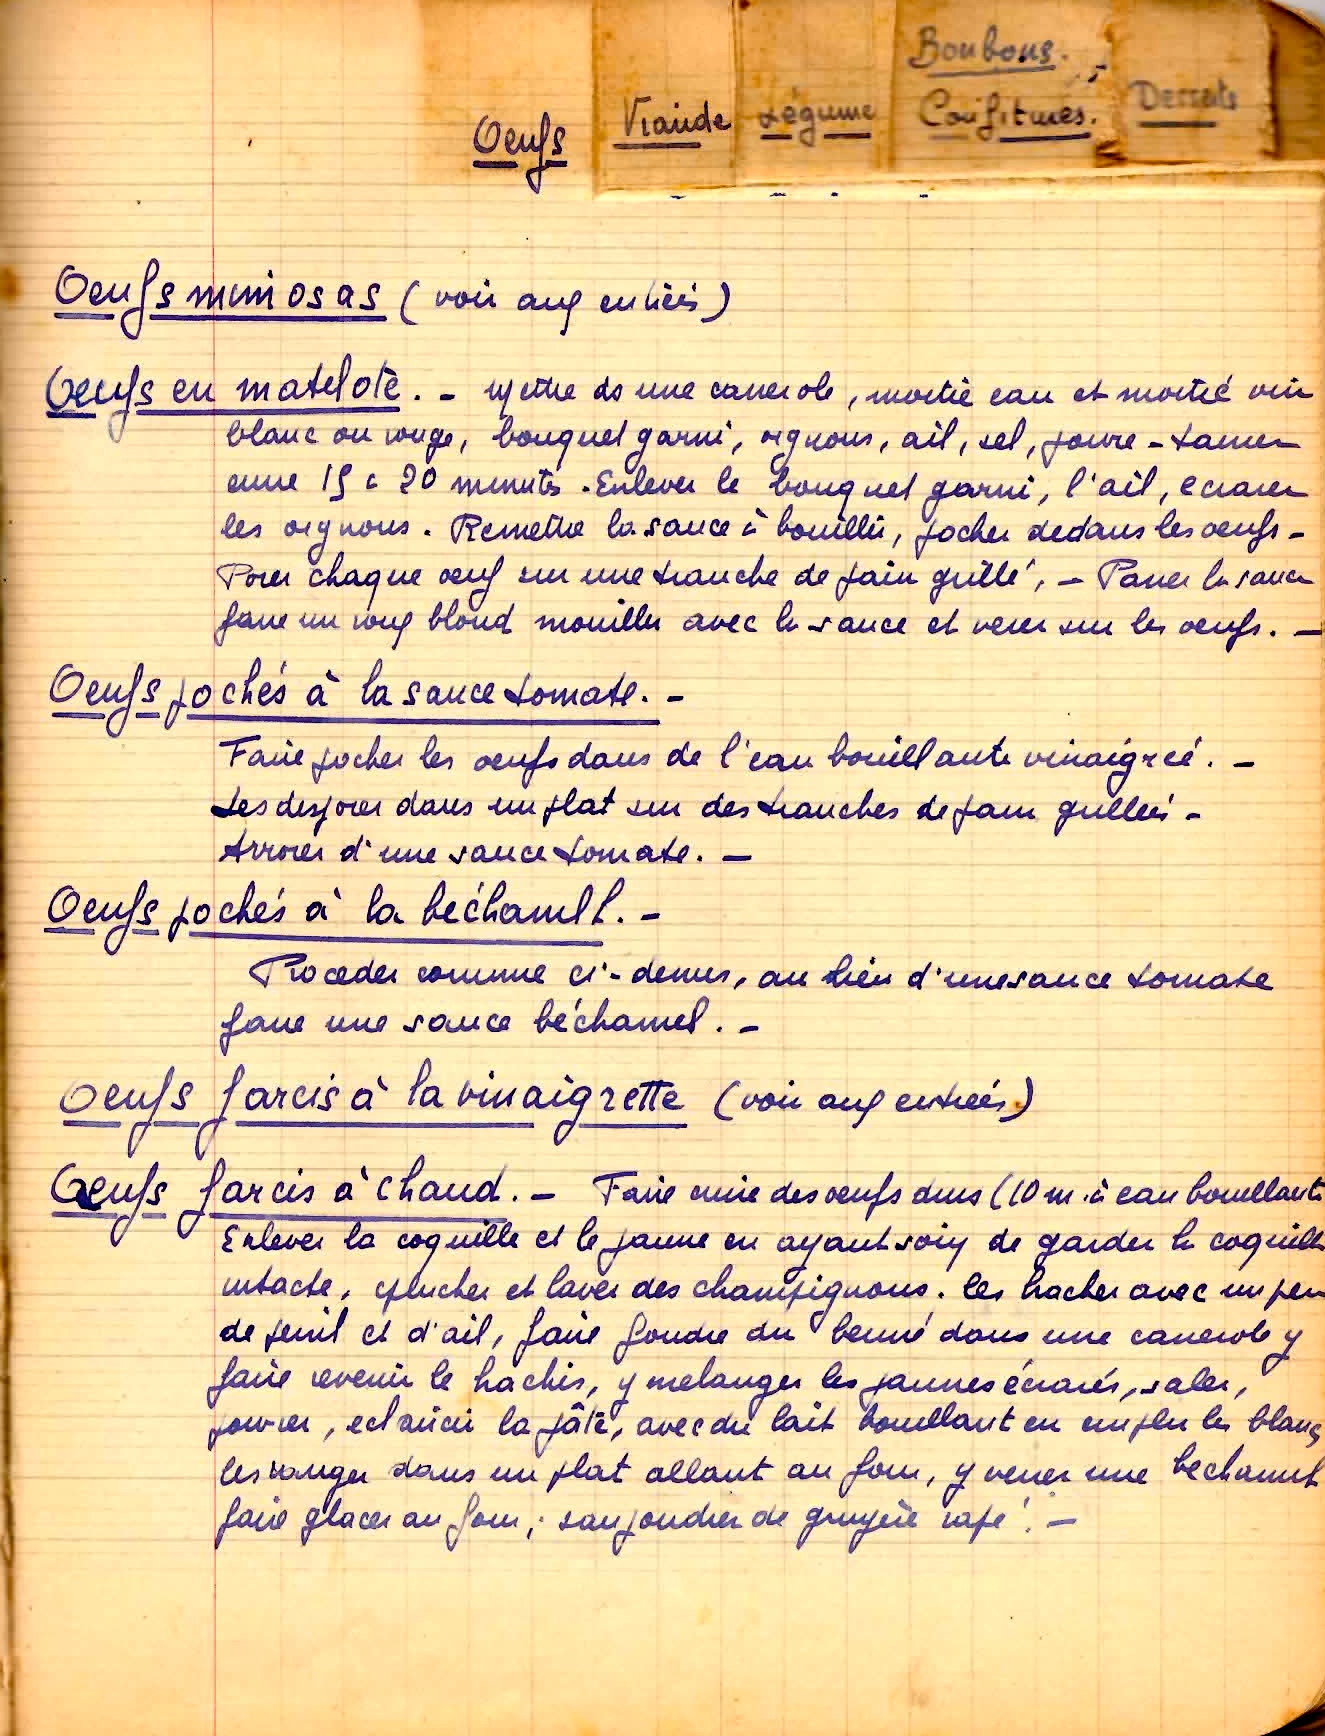 Bonbons.
Oeufs Viande Légume Confitures. Desserts
Oeufs mimosas (voir aux entrées)
Oeufs en matelote. - Mettre ds une casserole, moitié eau et moitié vin
blanc ou rouge, bouquet garni, oignons, ail, sel, poivre - Laisser
cuire 15 à 20 minutes. Enlever le bouquet garni, l'ail, écraser
les oignons. Remettre la sauce à bouillir, pocher dedans les oeufs -
Poser chaque oeuf sur une tranche de pain grillé, - Passer la sauce
faire un roux blond mouiller avec la sauce et verser sur les oeufs. -
Oeufs pochés à la sauce tomate. -
Faire pocher les oeufs dans de l'eau bouillante vinaigrée. -
Les disposer dans un plat sur des tranches de pain grillées -
Arroser d'une sauce tomate. -
Oeufs pochés à la béchamel. -
Procéder comme ci-dessus, au lieu d'une sauce tomate
faire une sauce béchamel. -
Oeufs farcis à la vinaigrette (voir aux entrées)
Oeufs farcis à chaud. - Faire cuire des oeufs durs (10 m. à eau bouillante
Enlever la coquille et le jaune en ayant soin de garder la coquille
intacte, éplucher et laver des champignons. les hacher avec un peu
de persil et d'ail, faire fondre du beurre dans une casserole y
faire revenir le hachis, y mélanger les jaunes écrasés, saler,
poivrer, éclaircir la pâte, avec du lait bouillant en emplir les blancs
les ranger dans un plat allant au four, y verser une bechamel
faire glacer au four, saupoudrer de gruyère rapé. -